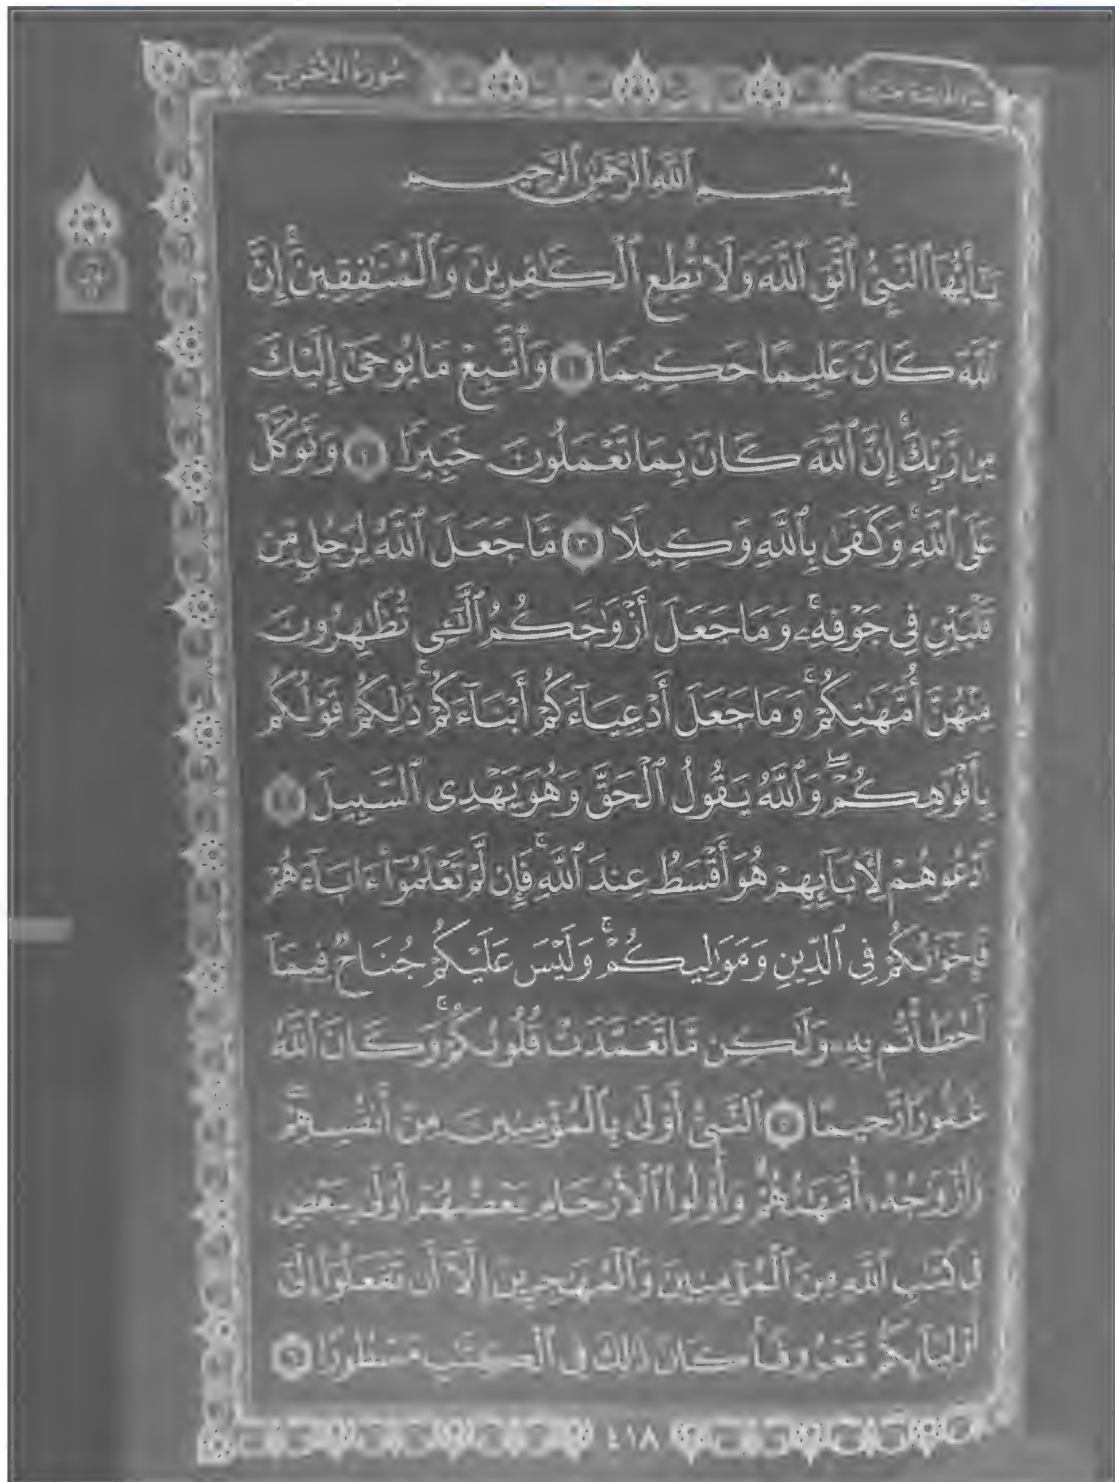 سُورَةُ الْأَحْزَابِ
بِسْمِ ٱللَّهِ ٱلرَّحْمَٰنِ ٱلرَّحِيمِ
يَٰٓأَيُّهَا ٱلنَّبِىُّ ٱتَّقِ ٱللَّهَ وَلَا تُطِعِ ٱلْكَٰفِرِينَ وَٱلْمُنَٰفِقِينَۗ إِنَّ
ٱللَّهَ كَانَ عَلِيمًا حَكِيمًا ١ وَٱتَّبِعْ مَا يُوحَىٰٓ إِلَيْكَ
مِن رَّبِّكَۚ إِنَّ ٱللَّهَ كَانَ بِمَا تَعْمَلُونَ خَبِيرًا ٢ وَتَوَكَّلْ
عَلَى ٱللَّهِۚ وَكَفَىٰ بِٱللَّهِ وَكِيلًا ٣ مَّا جَعَلَ ٱللَّهُ لِرَجُلٍ مِّن
قَلْبَيْنِ فِى جَوْفِهِۦۚ وَمَا جَعَلَ أَزْوَٰجَكُمُ ٱلَّٰٓـِٔى تُظَٰهِرُونَ
مِنْهُنَّ أُمَّهَٰتِكُمْۚ وَمَا جَعَلَ أَدْعِيَآءَكُمْ أَبْنَآءَكُمْۚ ذَٰلِكُمْ قَوْلُكُم
بِأَفْوَٰهِكُمْۖ وَٱللَّهُ يَقُولُ ٱلْحَقَّ وَهُوَ يَهْدِى ٱلسَّبِيلَ ٤
ٱدْعُوهُمْ لِأَبَآئِهِمْ هُوَ أَقْسَطُ عِندَ ٱللَّهِۚ فَإِن لَّمْ تَعْلَمُوٓا۟ ءَابَآءَهُمْ
فَإِخْوَٰنُكُمْ فِى ٱلدِّينِ وَمَوَٰلِيكُمْۚ وَلَيْسَ عَلَيْكُمْ جُنَاحٌ فِيمَآ
أَخْطَأْتُم بِهِۦ وَلَٰكِن مَّا تَعَمَّدَتْ قُلُوبُكُمْۚ وَكَانَ ٱللَّهُ
غَفُورًا رَّحِيمًا ٥ ٱلنَّبِىُّ أَوْلَىٰ بِٱلْمُؤْمِنِينَ مِنْ أَنفُسِهِمْۖ
وَأَزْوَٰجُهُۥٓ أُمَّهَٰتُهُمْۗ وَأُو۟لُوا۟ ٱلْأَرْحَامِ بَعْضُهُمْ أَوْلَىٰ بِبَعْضٍ
فِى كِتَٰبِ ٱللَّهِ مِنَ ٱلْمُؤْمِنِينَ وَٱلْمُهَٰجِرِينَ إِلَّآ أَن تَفْعَلُوٓا۟ إِلَىٰٓ
أَوْلِيَآئِكُم مَّعْرُوفًاۚ كَانَ ذَٰلِكَ فِى ٱلْكِتَٰبِ مَسْطُورًا ٦
٤١٨